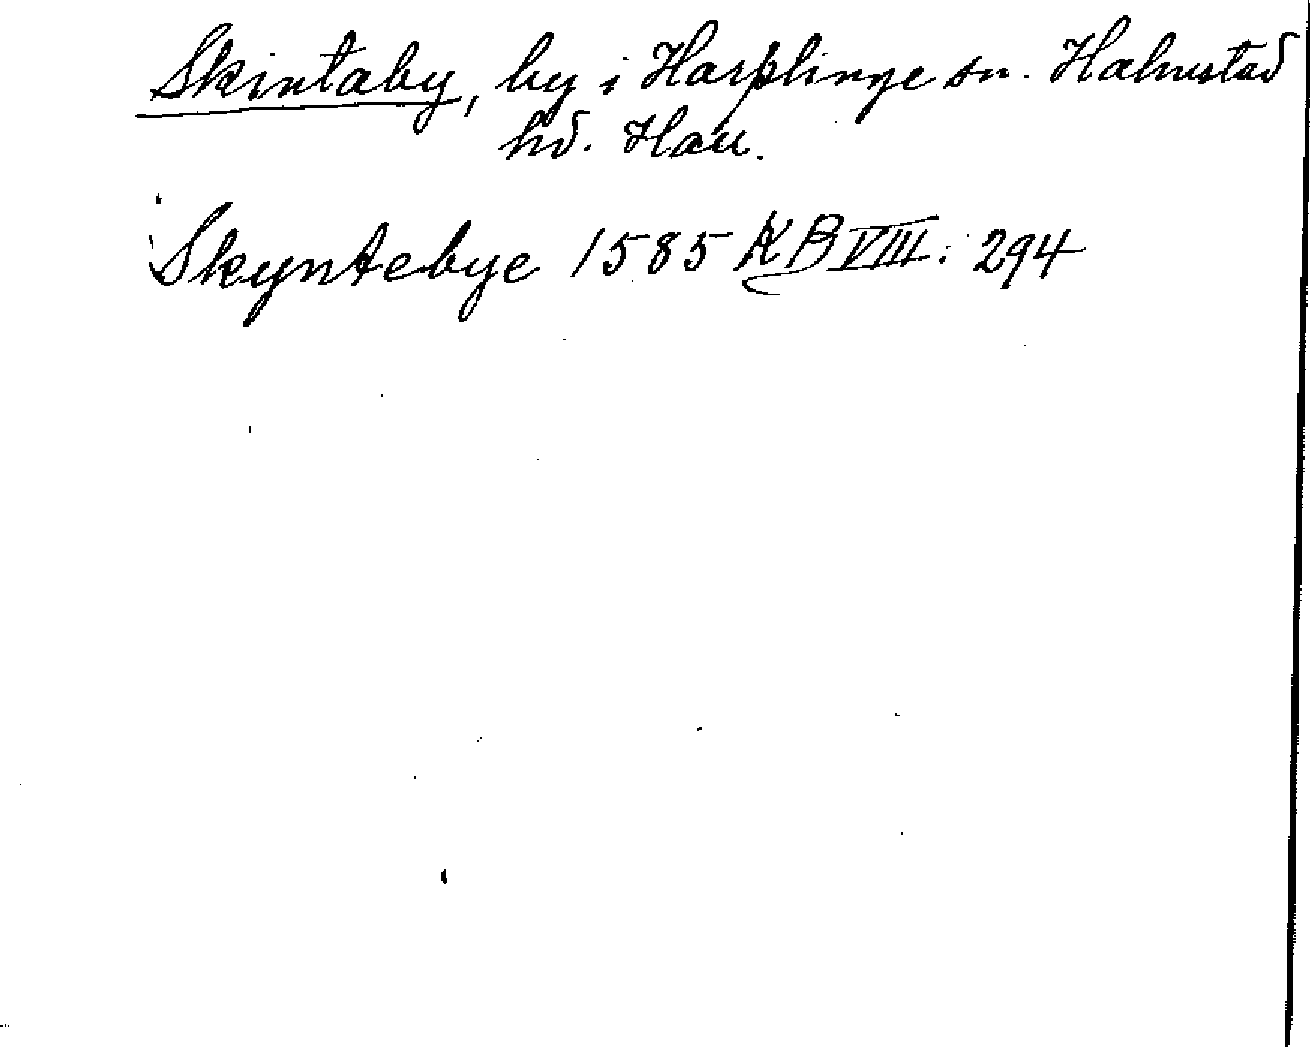 Skintaby, by i Harplinge sn. Halmstad
hd. Hall.
Skyntebye 1585 KB VIII: 294